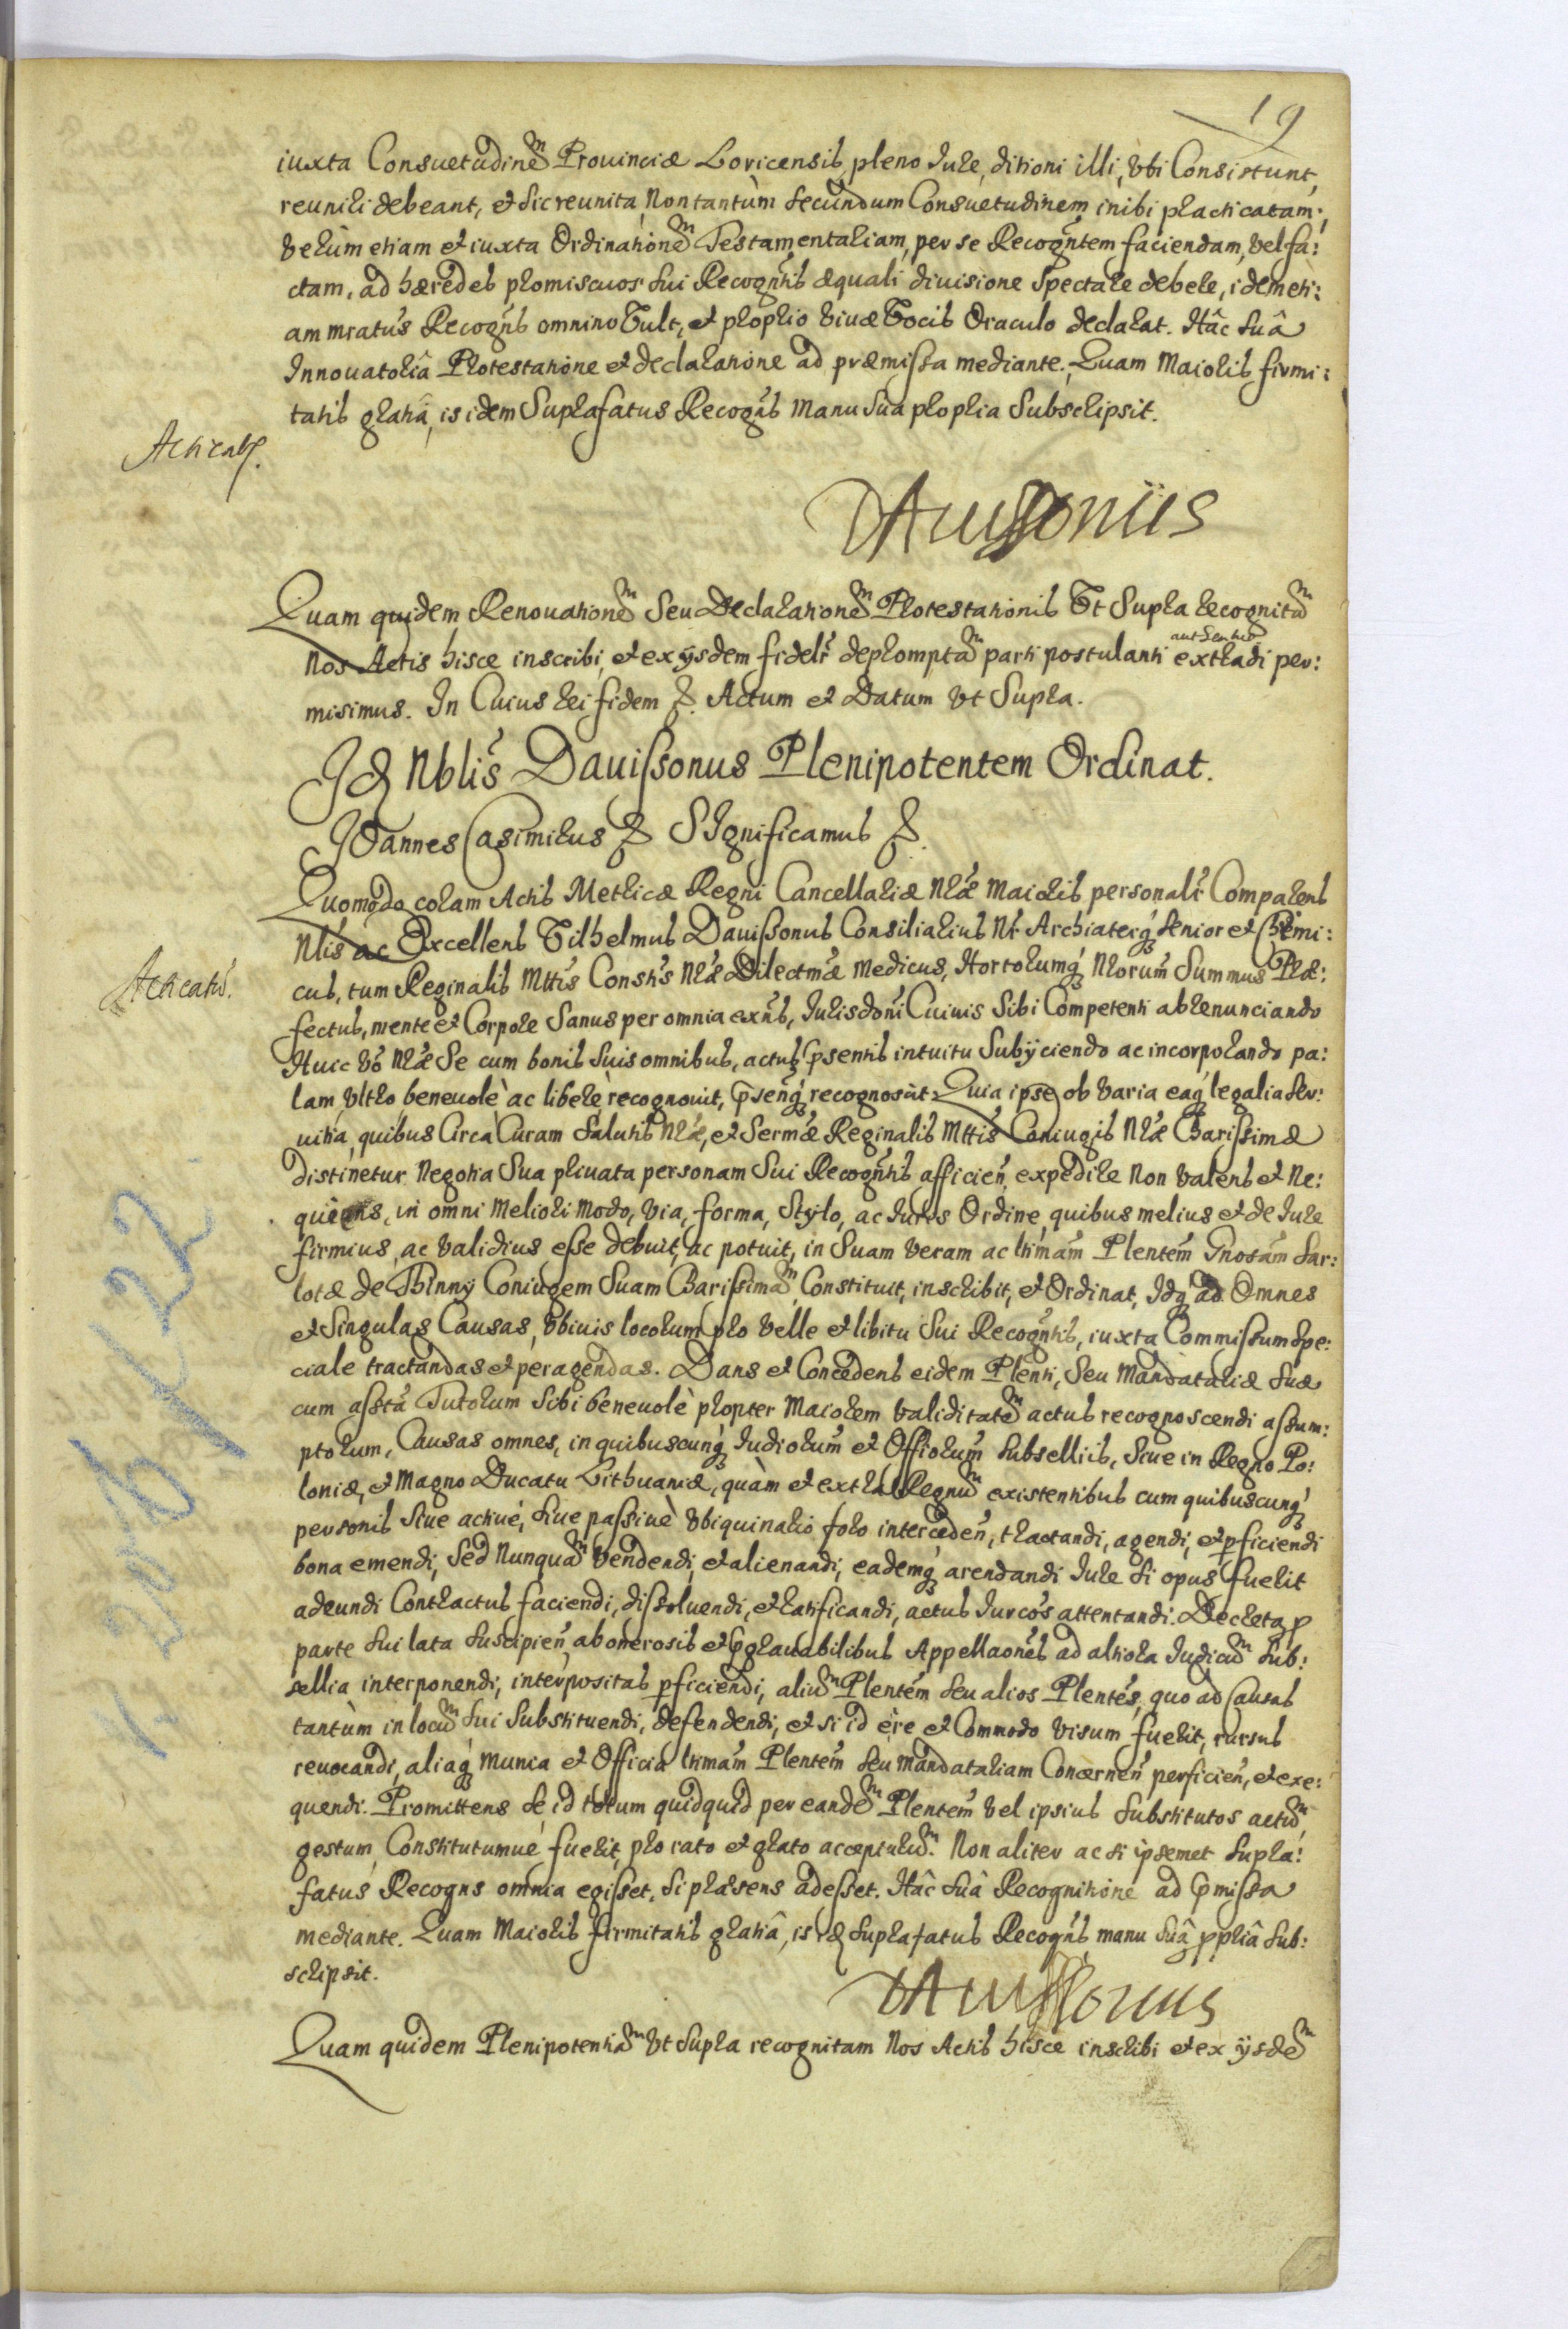 19
iuxta Consuetudinem Prouinciæ Lovicensis, pleno Jure, ditioni illi, vbi Consistunt,
reuniri debeant, et sic reunita, Non tantùm secundum Consuetudinem inibi practicatam,
verùm etiam et iuxta Ordinationem Testamentariam, per se Recogntem faciendam, vel fa:
ctam, ad hæredes promiscuos sui Recogntis æquali diuisione Spectare debere, idem eti:
am mratus Recogns omnino Vult, et proprio viuæ Vocis Oraculo declarat. Hâc suâ
Innouatoriâ Protestatione et declaratione ad præmissa mediante. Quam Maioris firmi:
tatis gratiâ, is idem Suprafatus Recogns Manu Sua propria Subscripsit.
Acticat.
DAuissonus
Quam quidem Renouationem Seu Declarationem Protestationis Vt Supra recognitam
Nos Actis hisce inscribi, et ex ijsdem fidelr depromptam parti postulanti authentice extradi per:
misimus. In Cuius rei fidem &. Actum et Datum vt Supra.
Idem Nblis Dauissonus Plenipotentem Ordinat.
JOannes Casimirus & SIgnificamus &.
Quomodo coram Actis Metricæ Regni Cancellariæ Nræ Maioris personalr Comparens
Nblis ac Excellens Vilhelmus Dauissonus Consiliarius Nr Archiaterq senior et Chimi:
cus, tum Reginalis Mttis Consrtis Nræ Dilectmæ Medicus, Hortorumq Nrorum Summus Præ:
Acticatu.
fectus, mente et Corpore Sanus per omnia exns, Jurisdoni Cuiuis Sibi Competenti abrenunciando
Huic vo Nræ Se cum bonis Suis omnibus, actus psentis intuitu Subijciendo ac incorporando pa:
lam, vltro, beneuolè ac liberè recognouit, psenq recognoscit. Quia ipse ob varia eaq legalia ser:
uitia, quibus Circa Curam Salutis Nræ, et Sermæ Reginalis Mttis Coniugis Nræ Charissimæ
distinetur Negotia Sua priuata personam Sui Recogntis afficien, expedire Non valens et Ne:
quiens, in omni Meliori Modo, via, forma, Stylo, ac Juris Ordine, quibus melius et de Jure
firmius, ac validius esse debuit, ac potuit, in Suam veram ac ltimam Plentem Gnosam Sar:
lotæ de Thinny Coniugem Suam Charissimam, Constituit, inscribit, et Ordinat, Idq ad Omnes
et Singulas Causas, vbiuis locorum pro velle et libitu Sui Recogntis, iuxta Commissum Spe:
ciale tractandas et peragendas. Dans et Concedens eidem Plenti, Seu Mandatariæ Suæ
cum assta Tutorum Sibi beneuolè propter Maiorem validitatem actus recognoscendi assum:
ptorum, Causas omnes, in quibuscunq Judiorum et Offiorum Subselliis, Siue in Regno Po:
loniæ, et Magno Ducatu Lithuaniæ, quàm et extra Regnum existentibus cum quibuscunq
personis Siue actiuè, Siue passiuè vbiquinario foro interceden, tractandi, agendi, et pficiendi
bona emendi, Sed Nunquam Vendendi, et alienandi, eademq arendandi Jure Si opus fuerit
adeundi Contractus faciendi, dissoluendi, et ratificandi, actus Jurcos attentandi. Decreta p
parte Sui lata Suscipien, ab onerosis et pgrauabilibus Appellaones ad altiora Judicum Sub:
sellia interponendi, interpositas pficiendi, alium Plentem seu alios Plentes, quo ad Causas
tantùm in locum Sui Substituendi, defendendi, et si id ère et Commodo visum fuerit, rursus
reuocandi, aliaq Munia et Officia ltimam Plentem seu Mandatariam Concernen perficien, et exe:
quendi. Promittens Se id totum quidquid per eandem Plentem vel ipsius Substitutos actum,
gestum, Constitutumue fuerit, pro rato et grato accepturum. Non aliter ac si ipsemet Supra:
fatus Recogns omnia egisset, Si præsens adesset. Hâc Suâ Recognitione ad pmissa
mediante. Quam Maioris firmitatis gratiâ, is idem Suprafatus Recogns manu Suâ ppriâ Sub:
scripsit.
DAuissonus
Quam quidem Plenipotentiam vt Supra recognitam Nos Actis hisce inscribi et ex ijsdem